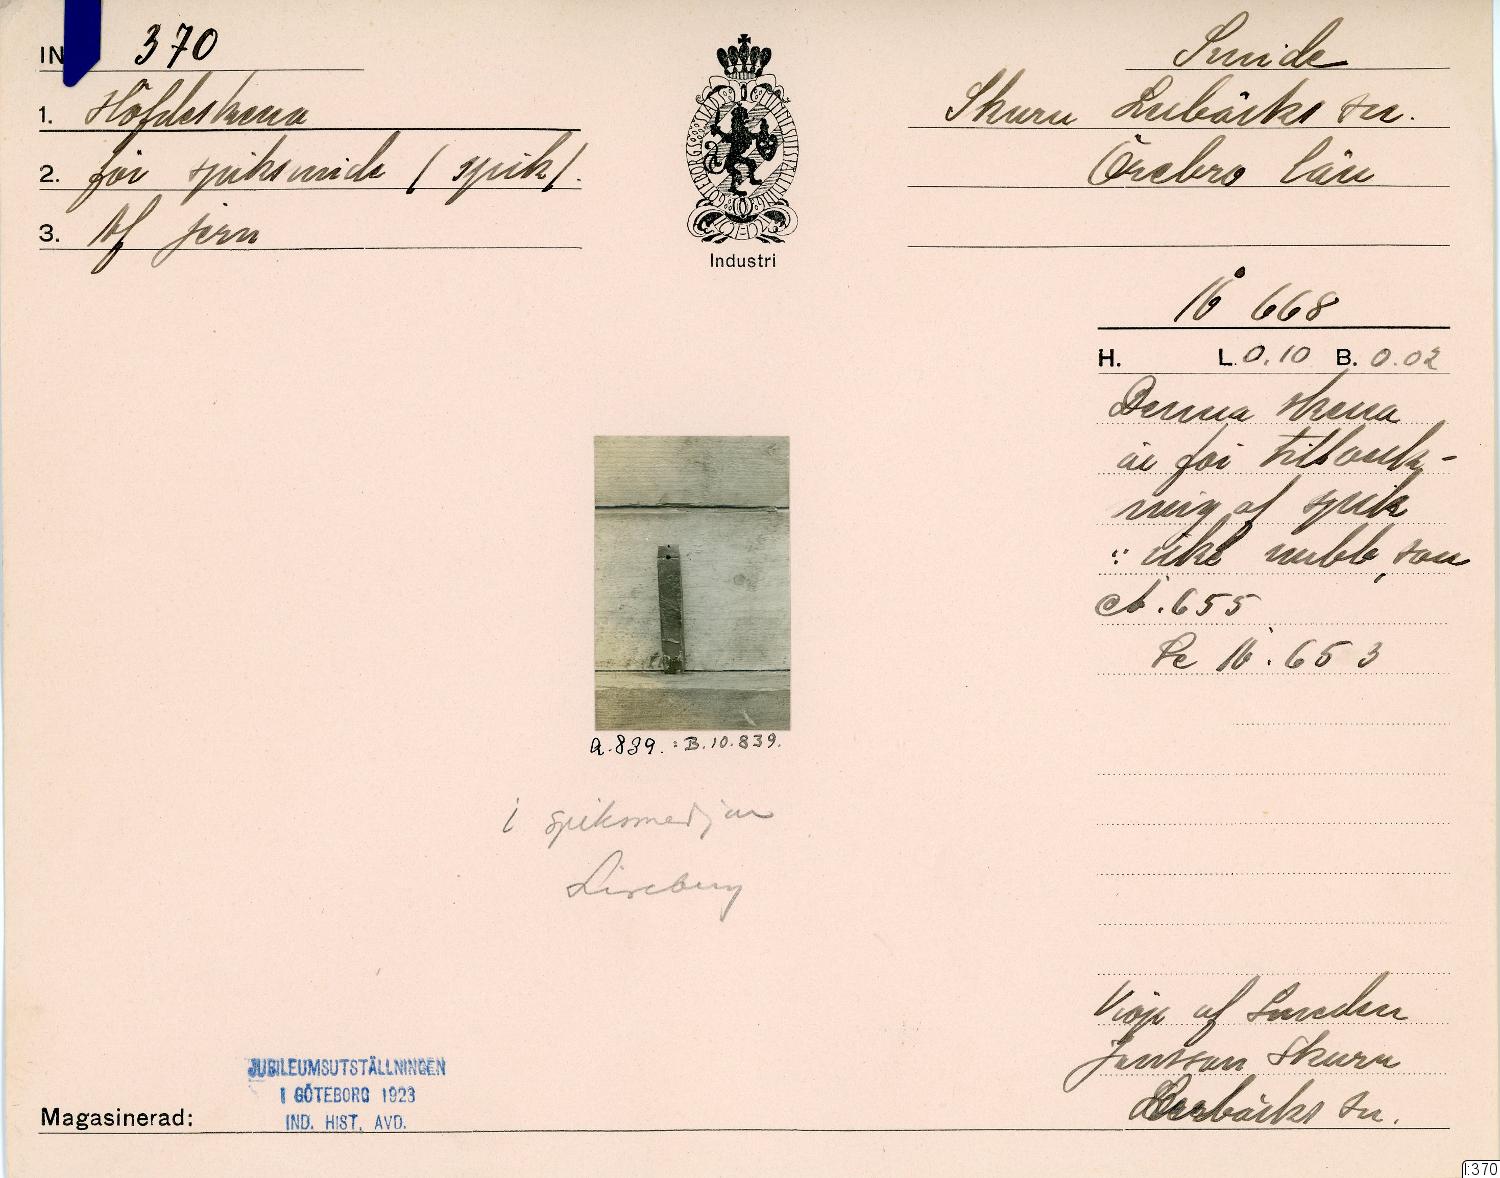 IN 370
1. Höfdeskena
2. för spiksmide (spik).
3. Af jern
Industri
Smide
Skuru Lerbäcks sn.
Örebro län
668
H. L. 0.10 B. 0.02
Denna skena
är för tillverk-
ning af spik
nubb, som
655
Se 653
a.839. : B.10.839.
i spiksmedjan
Liseberg
Köpt af Smeden
Jansson Skuru
Lerbäcks sn.
JUBILEUMSUTSTÄLLNINGEN
I GÖTEBORG 1923
IND. HIST. AVD.
Magasinerad:
I:370